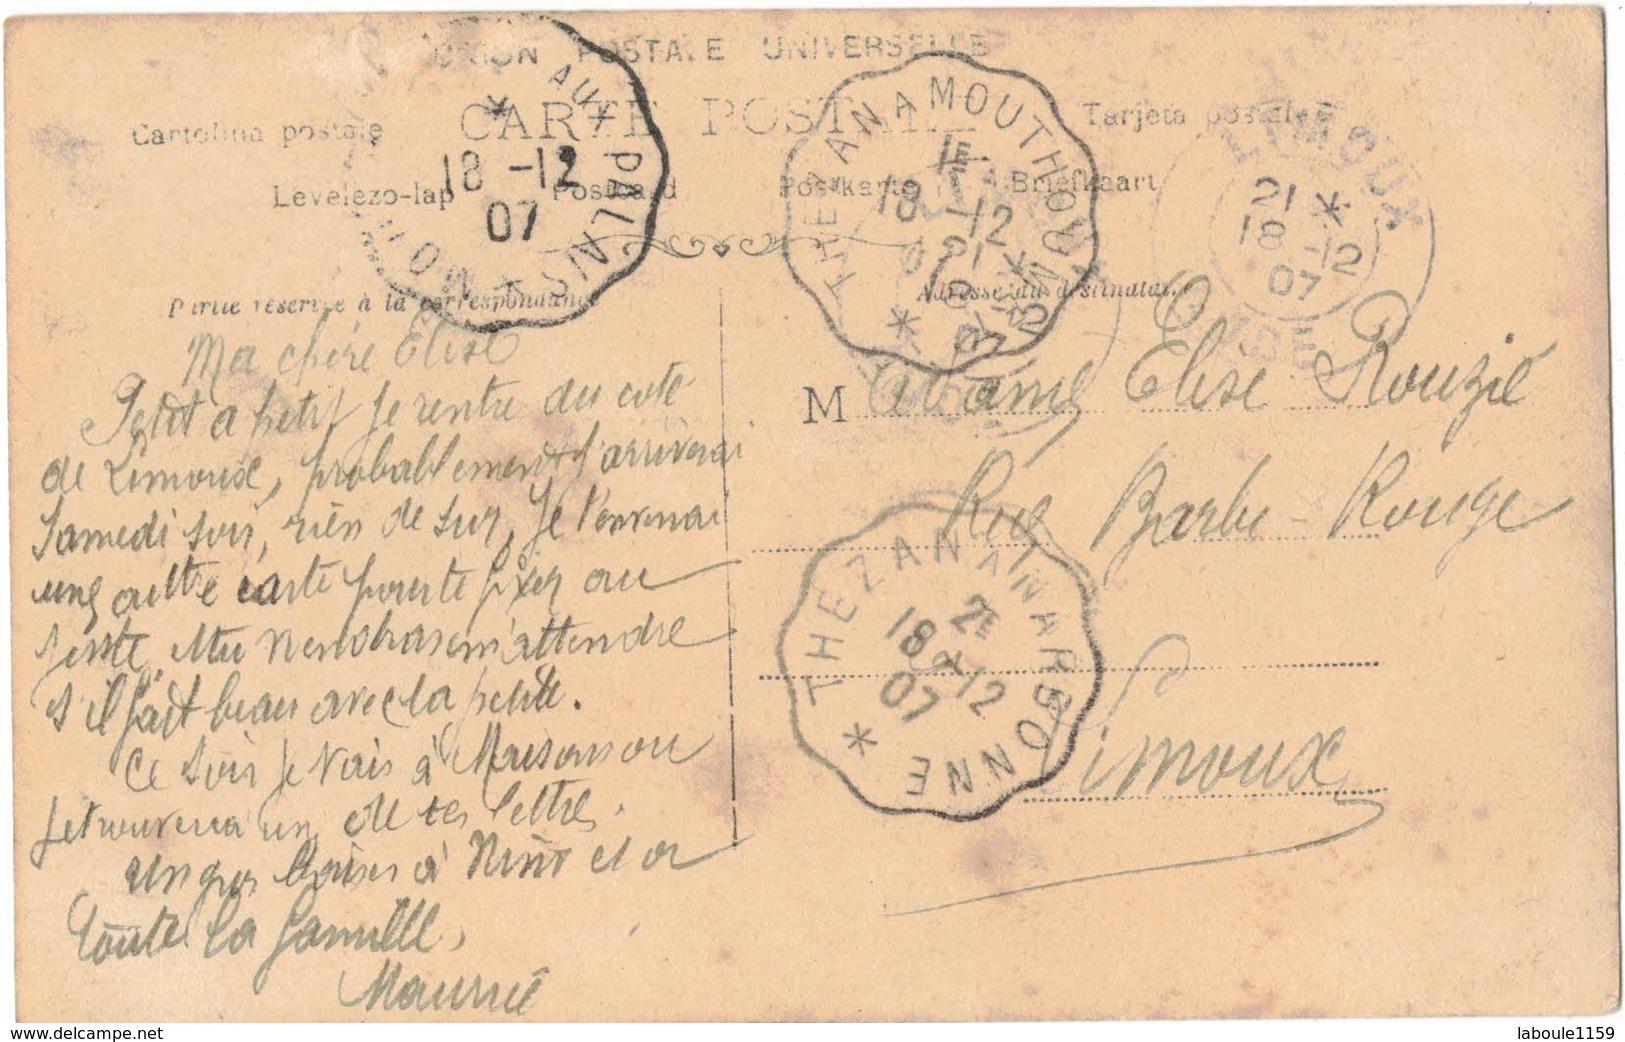 UNION POSTALE UNIVERSELLE
CARTE POSTALE
Cartolina postale
Tarjeta postal
Levelezo-lap
Postcard
Postkarte
Briefkaart
Partie réservée à la correspondance
Adresse du destinataire
AUX PALAIS
18 -12
07
THEZAN A MOUTHOUMET
1E
18 -12
07
LIMOUX
AUDE
21 *
18 -12
07
THEZAN A NARBONNE
2E
18 -12
07
Ma chère Elise
Petit a petit je rentre du coté
de Limoux, probablement j'arriverai
Samedi soir, rien de sur, Je t'enverrai
une autre carte pour te fixer au
juste. Tu viendras m'attendre
s'il fait beau avec la petite.
Ce soir je vais à Maisons ou
je trouverai une de tes lettres.
Un gros baiser à Ninie et a
toute la famille,
Maurice
Madame Elise Rouzié
Rue Barbe-Rouge
Limoux
laboule1159
www.delcampe.net